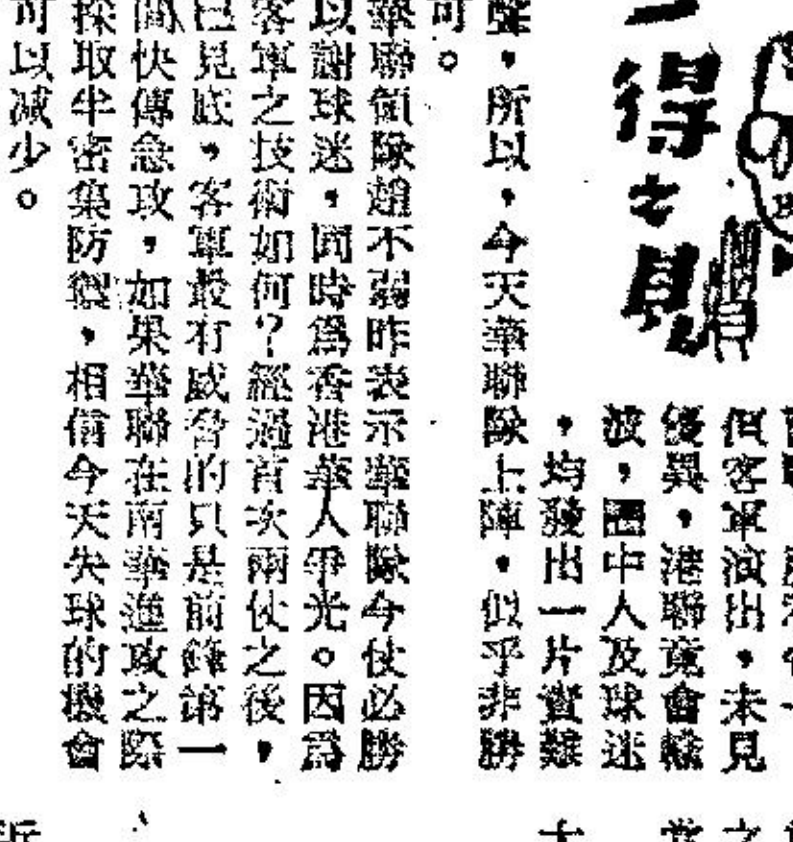 一得之見
但客軍演出，未見
優異，港聯竟會輸
波，圈中人及球迷
，均發出一片責難
聲，所以，今天華聯隊上陣，似乎非勝
可。
華聯領隊趙不弱昨表示華聯隊今仗必勝
以謝球迷，同時爲香港華人爭光。因爲
客軍之技術如何？經過首次兩仗之後，
已見底，客軍最有威脅的只是前鋒第一
快傳急攻，如果華聯在兩華進攻之際
採取半密集防禦，相信今天失球的機會
可以減少。